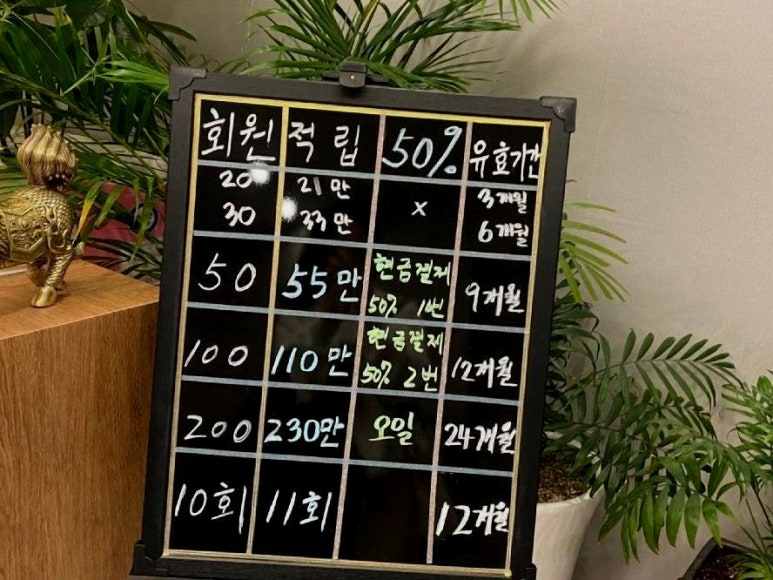 회원 적립 50% 유효기간
20 21만 x 3개월
30 33만 6개월
50 55만 현금결제 50% 1번 9개월
100 110만 현금결제 50% 2번 12개월
200 230만 오일 24개월
10회 11회 12개월